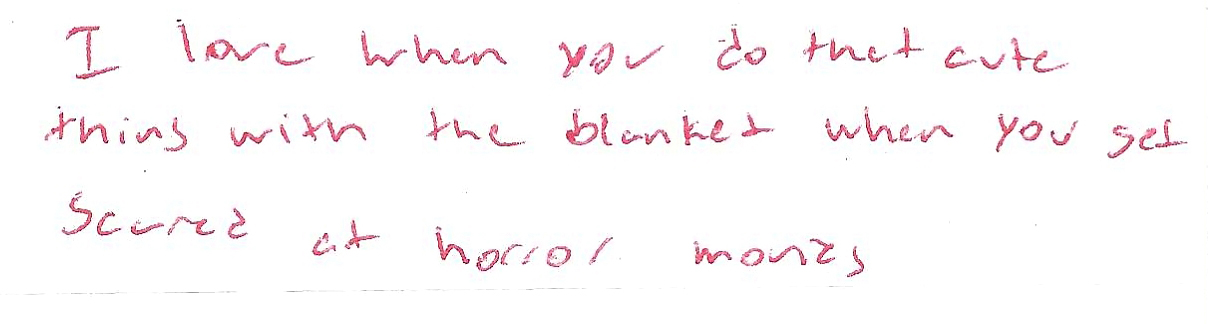 I love when you do that cute
thing with the blanket when you get
scared at horror movies